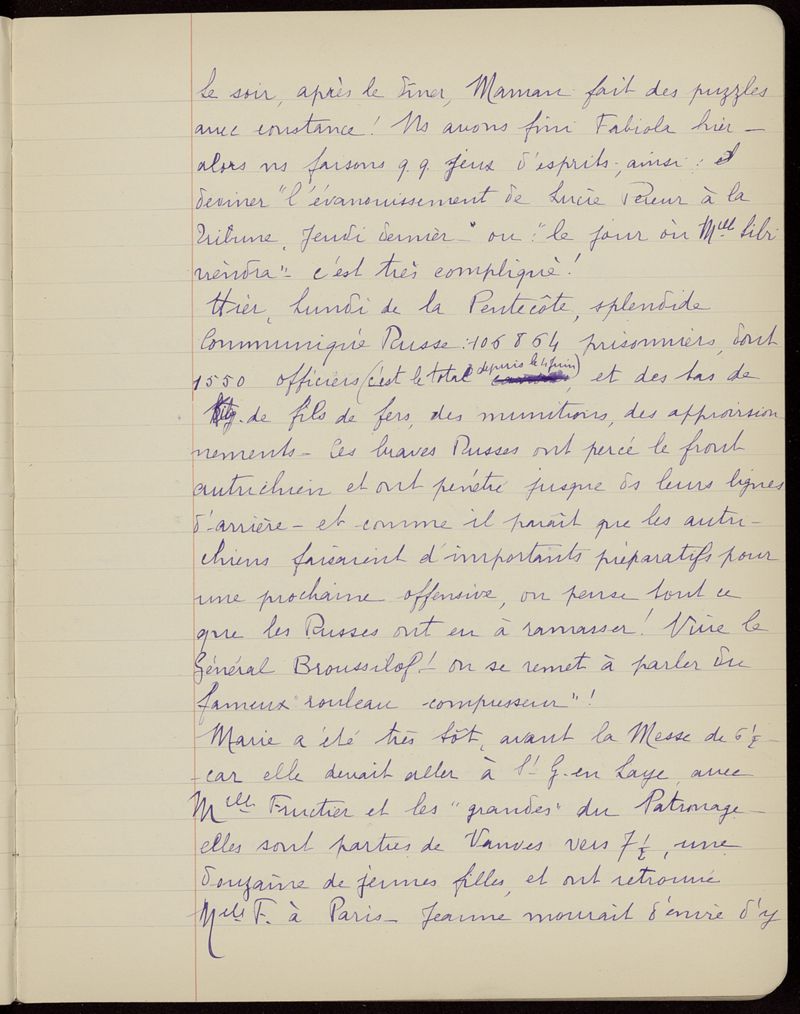 Le soir, après le dîner, Maman fait des puzzles
avec constance ! Ns avons fini Fabiola hier –
alors ns faisons q.q. jeux d'esprits, ainsi :
deviner "l'évanouissement de Lucie à la
Tribune, Jeudi dernier –" ou : "le jour où Melle
viendra" – c'est très compliqué !
Hier, Lundi de la Pentecôte, splendide
Communiqué Russe : 106864 prisonniers, dont
1550 officiers (c'est le total depuis le 4 juin), et des tas de
de fils de fers, des munitions, des approvision
nements – Ces braves Russes ont percé le front
autrichien et ont pénétré jusque ds leurs lignes
d'arrière – et comme il paraît que les autri-
chiens faisaient d'importants préparatifs pour
une prochaine offensive, on pense tout ce
que les Russes ont eu à ramasser ! Vive le
Général Broussilof ! on se remet à parler du
fameux rouleau compresseur" !
Marie a été très tôt, avant la Messe de 6 ½ –
– car elle devait aller à St G. en Laye avec
Melle Fructier et les "grandes" du Patronage –
elles sont parties de Vanves vers 7 ½, une
douzaine de jeunes filles, et ont retrouvé
Melle F. à Paris – Jeanne mourait d'envie d'y